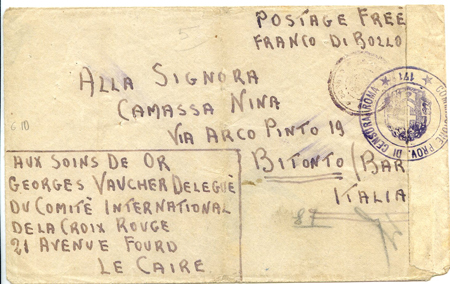 POSTAGE FREE
FRANCO DI BOLLO
ALLA SIGNORA
CAMASSA NINA
VIA ARCO PINTO 19
BITONTO (BAR
ITALIA
COMMISSIONE PROV. DI CENSURA ROMA
6.10
87
AUX SOINS DE DR
GEORGES VAUCHER DELEGUÉ
DU COMITÈ INTERNATIONAL
DE LA CROIX ROUGE
21 AVENUE FOURD
LE CAIRE